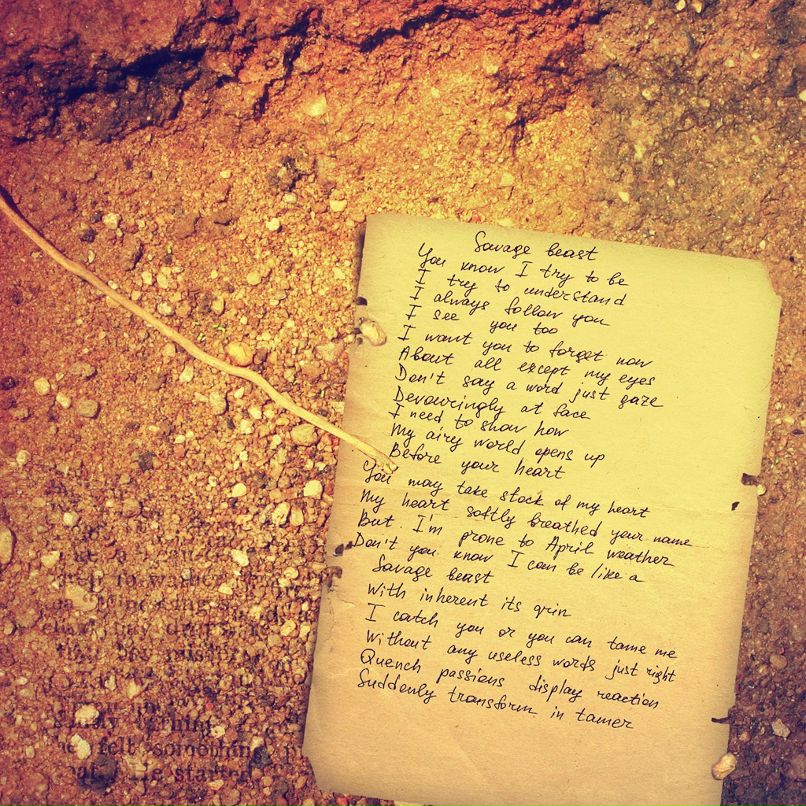 Savage beast
You know I try to be
I try to understand
I always follow you
I see you too
I want you to forget now
About all except my eyes
Don't say a word just gaze
Devouringly at face
I need to show how
My airy world opens up
Before your heart
You may take stock of my heart
My heart softly breathed your name
But I'm prone to April weather
Don't you know I can be like a
Savage beast
With inherent its grin
I catch you or you can tame me
Without any useless words just right
Quench passions display reaction
Suddenly transform in tamer
felt something
He started